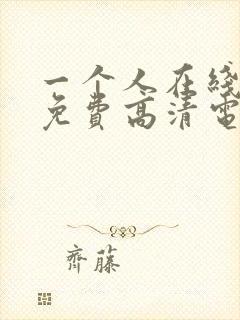 一个人在线
免费高清電
齊藤